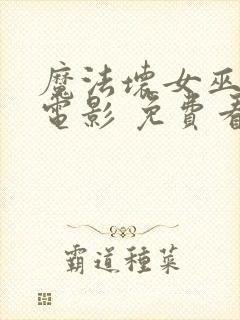 魔法壞女巫
電影 免費看
霸道種菜